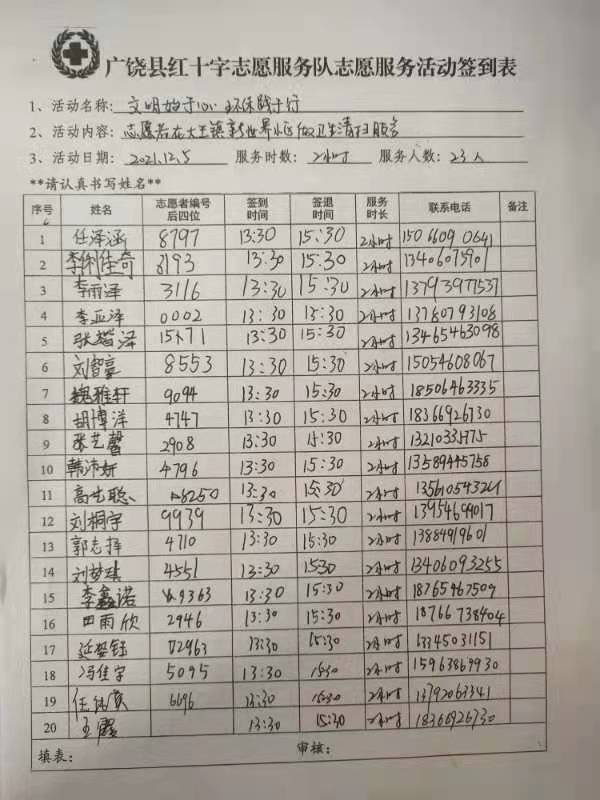 广饶县红十字志愿服务队志愿服务活动签到表
1、活动名称: 文明始于心 环保践于行
2、活动内容: 志愿者在大王镇新世界小区做卫生清扫服务
3、活动日期: 2021.12.5 服务时数: 2小时 服务人数: 23人
**请认真书写姓名**
序号 姓名 志愿者编号后四位 签到时间 签退时间 服务时长 联系电话 备注
1 任泽涵 8797 13:30 15:30 2小时 15066090641
2 李俐佳奇 8193 13:30 15:30 2小时 13406075901
3 李雨泽 3116 13:30 15:30 2小时 13793977537
4 李亚泽 0002 13:30 15:30 2小时 13780793108
5 张 泽 13:30 15:30 2小时 13465463098
6 刘智豪 8553 13:30 15:30 2小时 15054608067
7 魏雅轩 9094 13:30 15:30 2小时 18506463335
8 胡博洋 4747 13:30 15:30 2小时 18366926730
9 张艺馨 2908 13:30 15:30 2小时
10 韩沛妍 4796 13:30 15:30 2小时 13589445758
11 高 聪 8250 13:30 15:30 2小时
12 刘桐宇 9939 13:30 15:30 2小时
13 郭志择 4710 13:30 15:30 2小时 13884919601
14 刘梦琪 4551 13:30 15:30 2小时 13406093255
15 李鑫诺 9363 13:30 15:30 2小时 18765467509
16 田雨欣 2946 13:30 15:30 2小时 18766738404
17 钰 02963 13:30 15:30 2小时
18 冯佳宇 5095 13:30 15:30 2小时 15963869930
19 6696 13:30 15:30 2小时 13792063341
20 王霞 13:30 15:30 2小时 18366926730
填表: 审核: